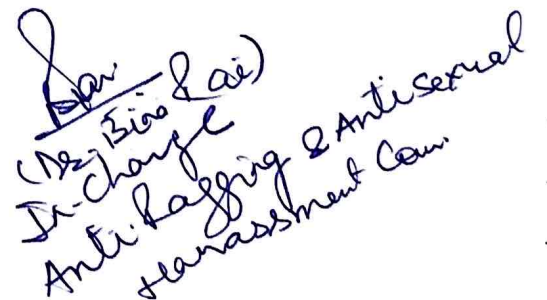 (Dr. Bina Rai)
In-Charge
Anti Ragging & Antisexual
Harassment Com.